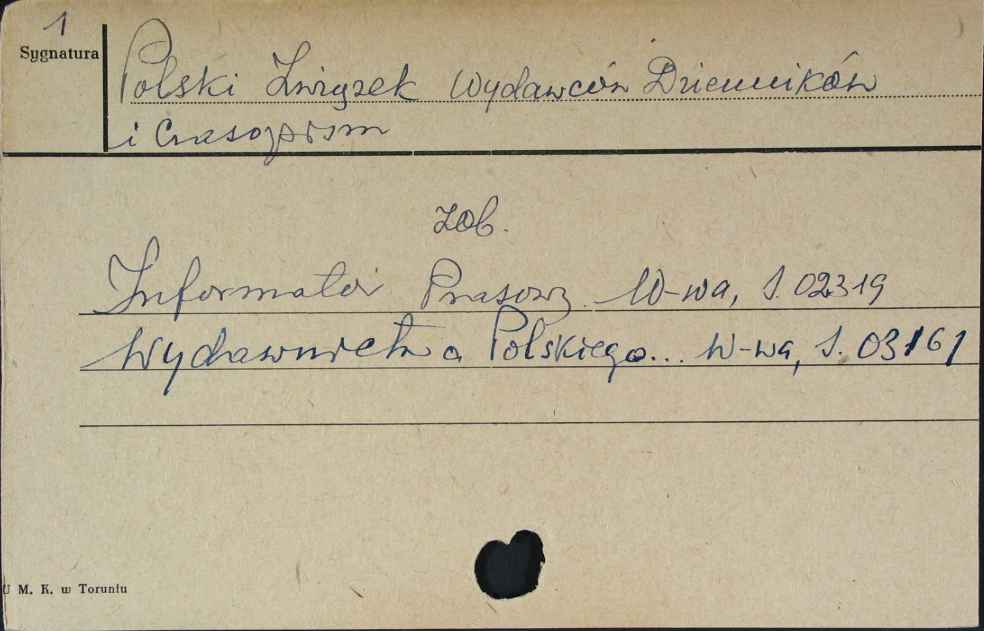 1
Sygnatura
Polski Związek Wydawców Dzienników
i Czasopism
zob.
Informator Prasowy. W-wa, S. 02319
Wydawnictwa Polskiego... W-wa, S. 03161
U M. K. w Toruniu